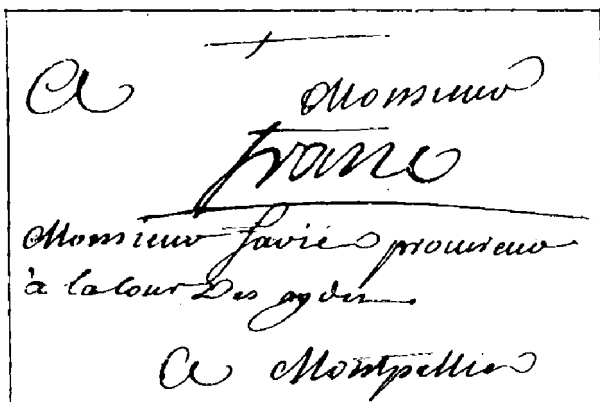 A Monsieur
franc
Monsieur favié procureur
à la Cour Des aydes
A Montpellier